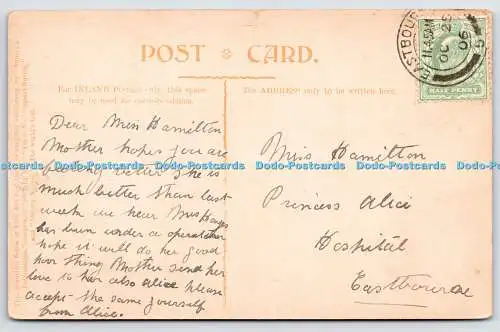 POST CARD.
For INLAND Postage only, this space
may be used for communication.
The ADDRESS only to be written here.
EASTBOURNE
11.45AM
OC 25
06
HALF PENNY
Dear Miss Hamilton
Mother hopes you are
feeling better she is
much better than last
week we hear Miss
has been under a operation
hope it will do her good
poor thing Mother sends her
love to her also alice please
accept the same yourself
from Alice.
Miss Hamilton
Princess Alice
Hospital
Eastbourne
Dodo-Postcards Dodo-Postcards Dodo-Postcards Dodo-Postcards Dodo-Postcards